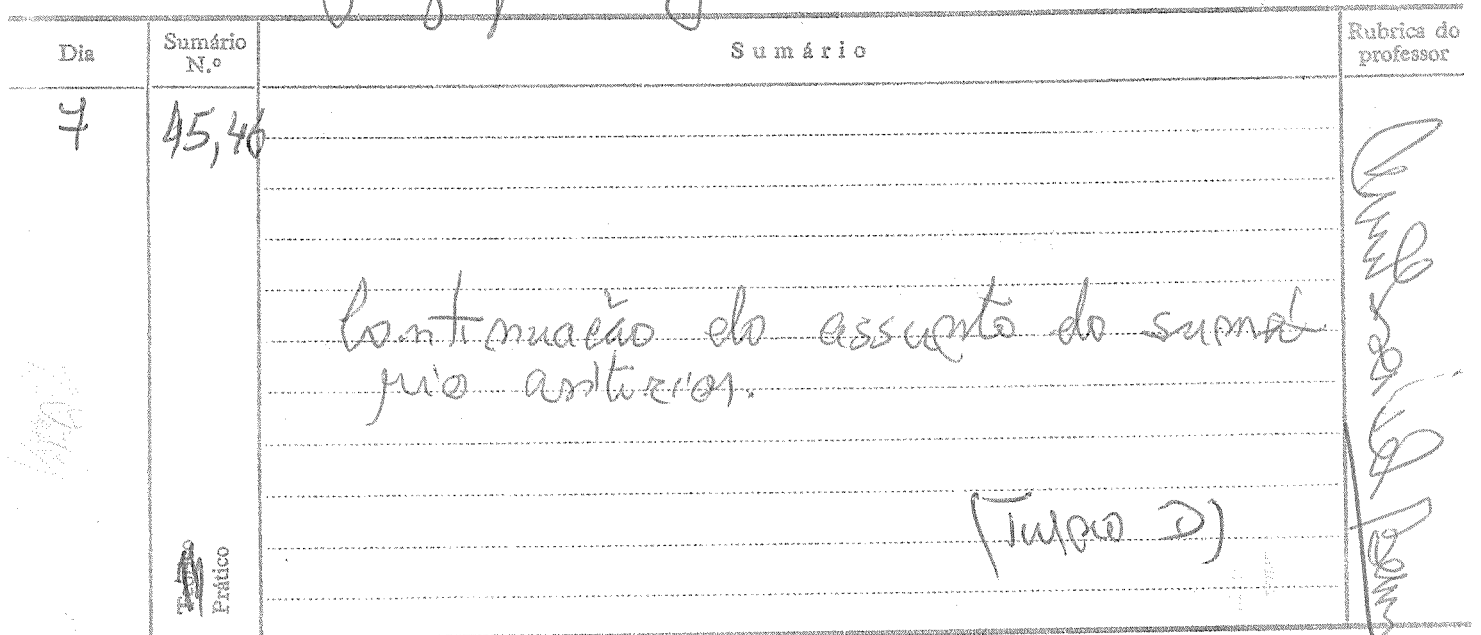 Dia
Sumário N.º
Sumário
Rubrica do professor
7
45,46
Continuação do assunto do sumá
rio anterior.
(Turma D)
Prático